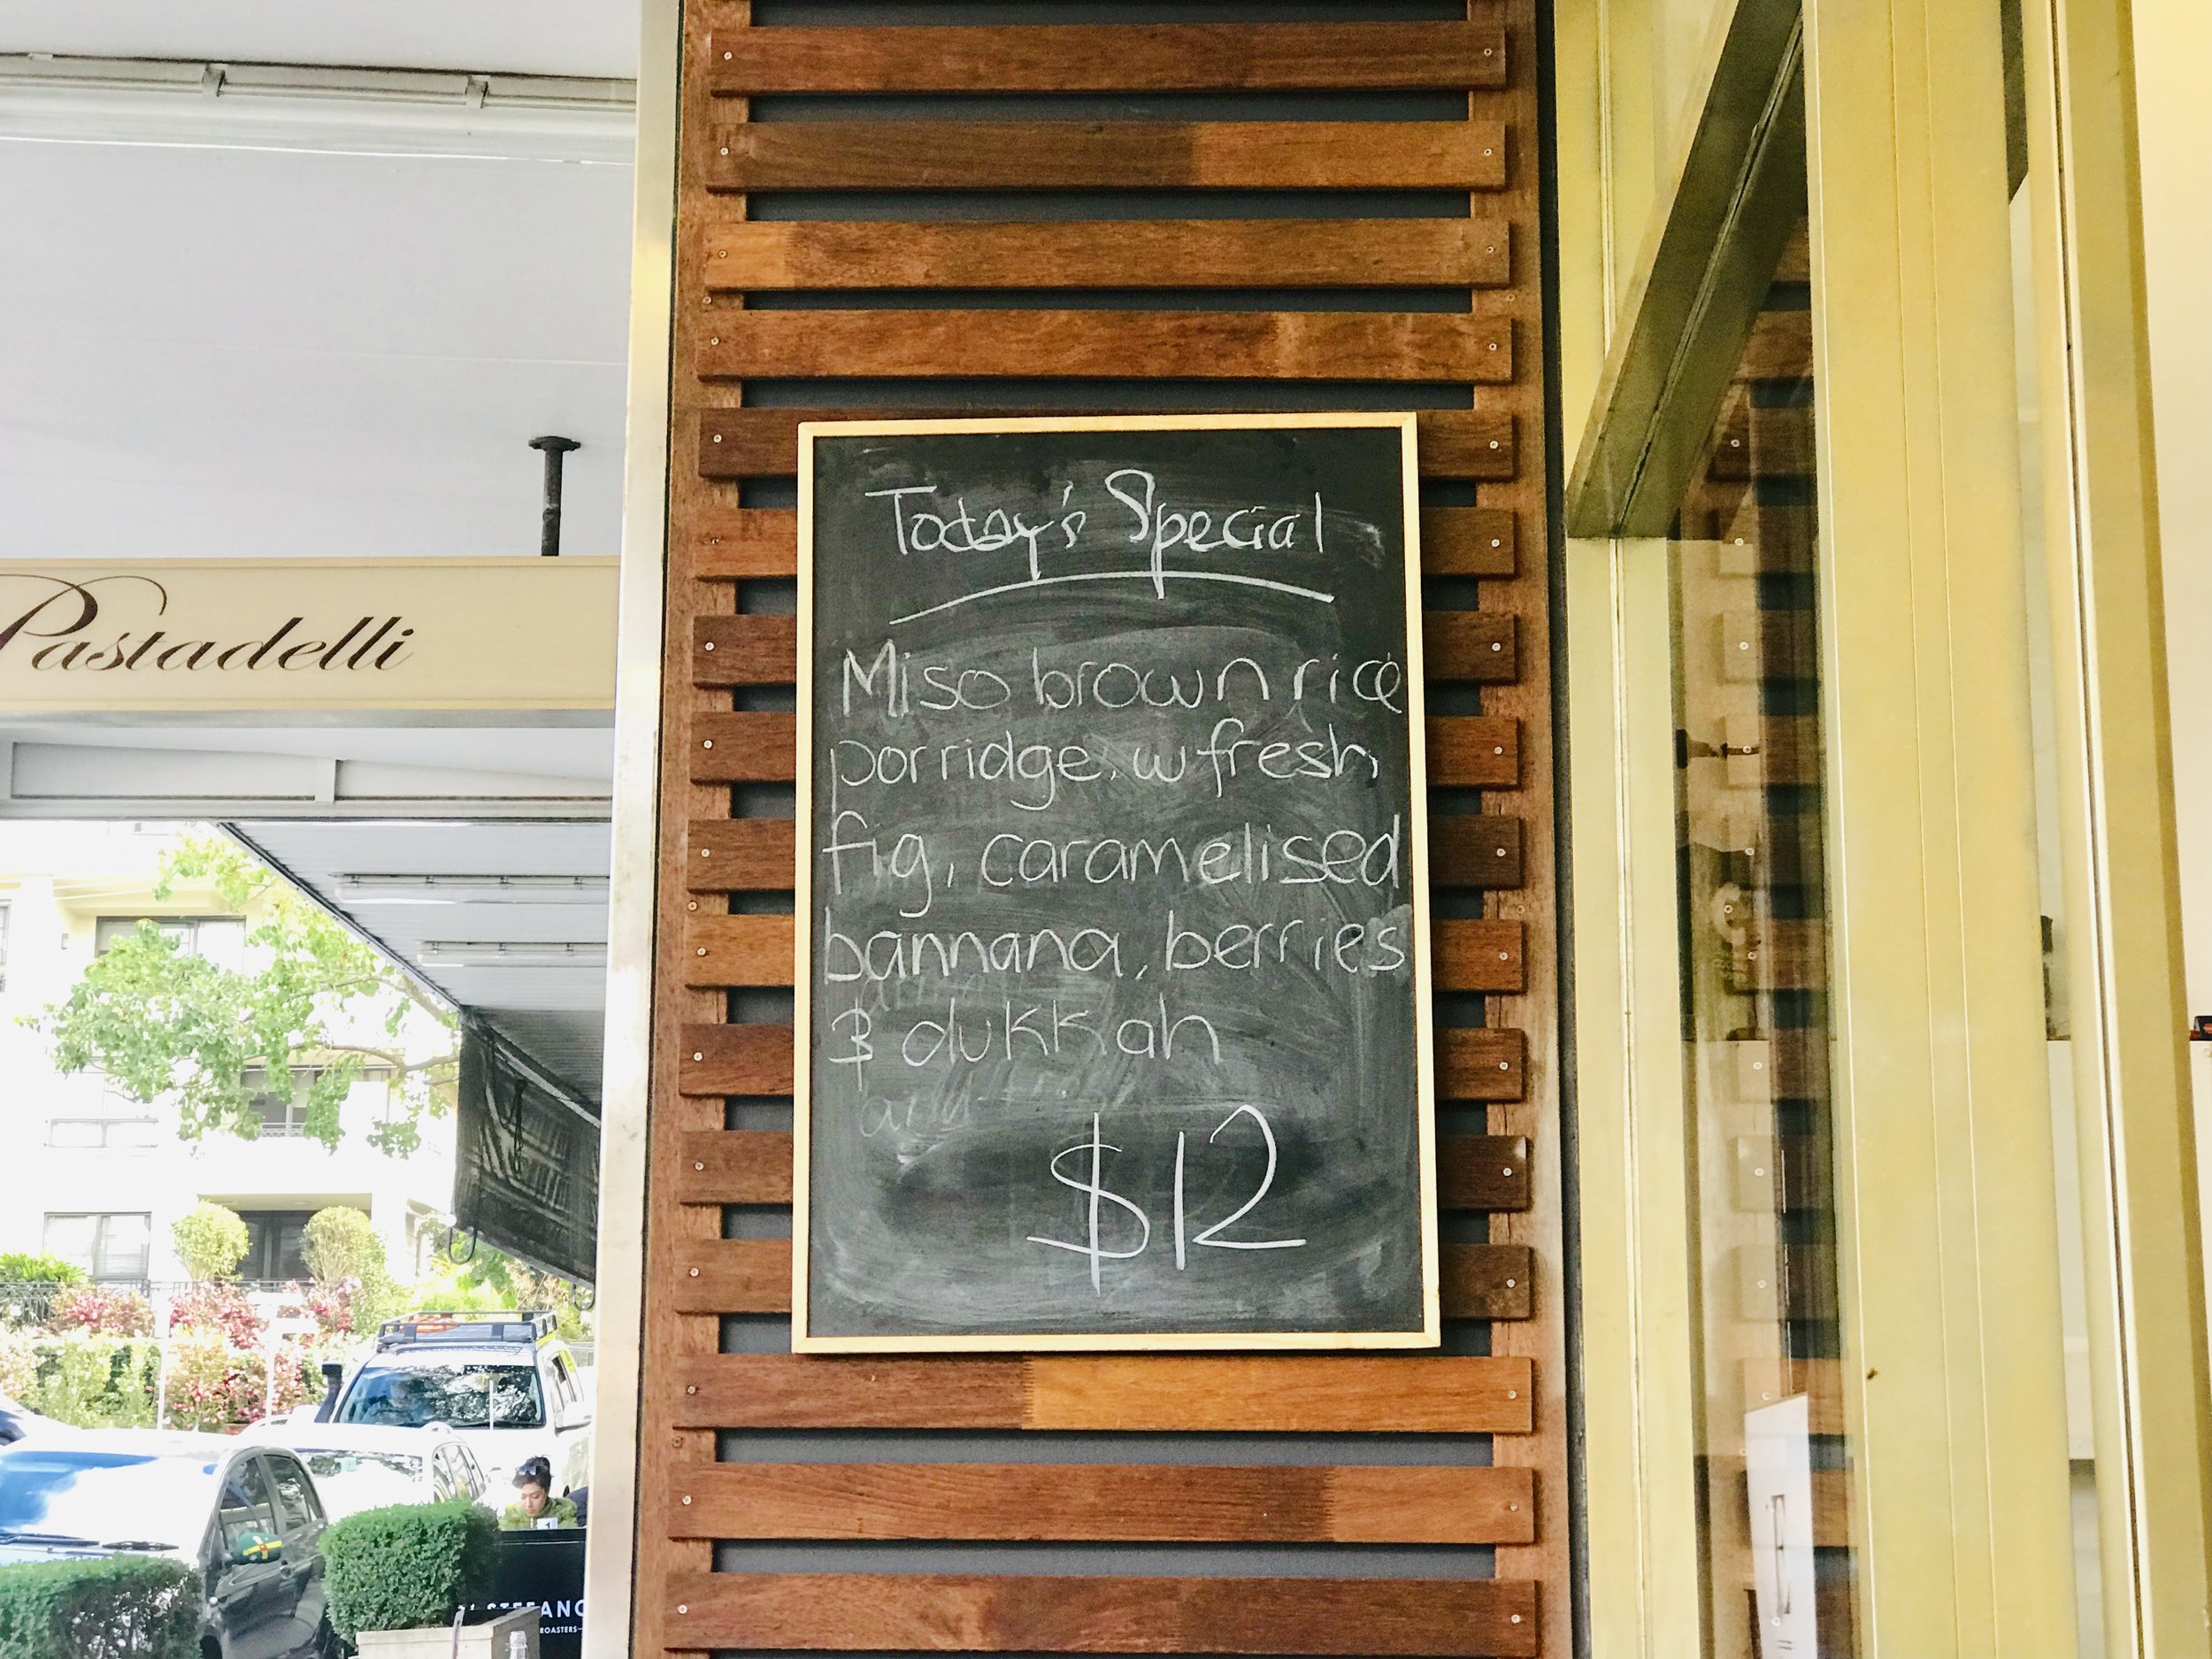 Pastadelli
Today's Special
Miso brown rice
porridge. w fresh
fig, caramelised
bannana, berries
& dukkah
$12
ROASTERS